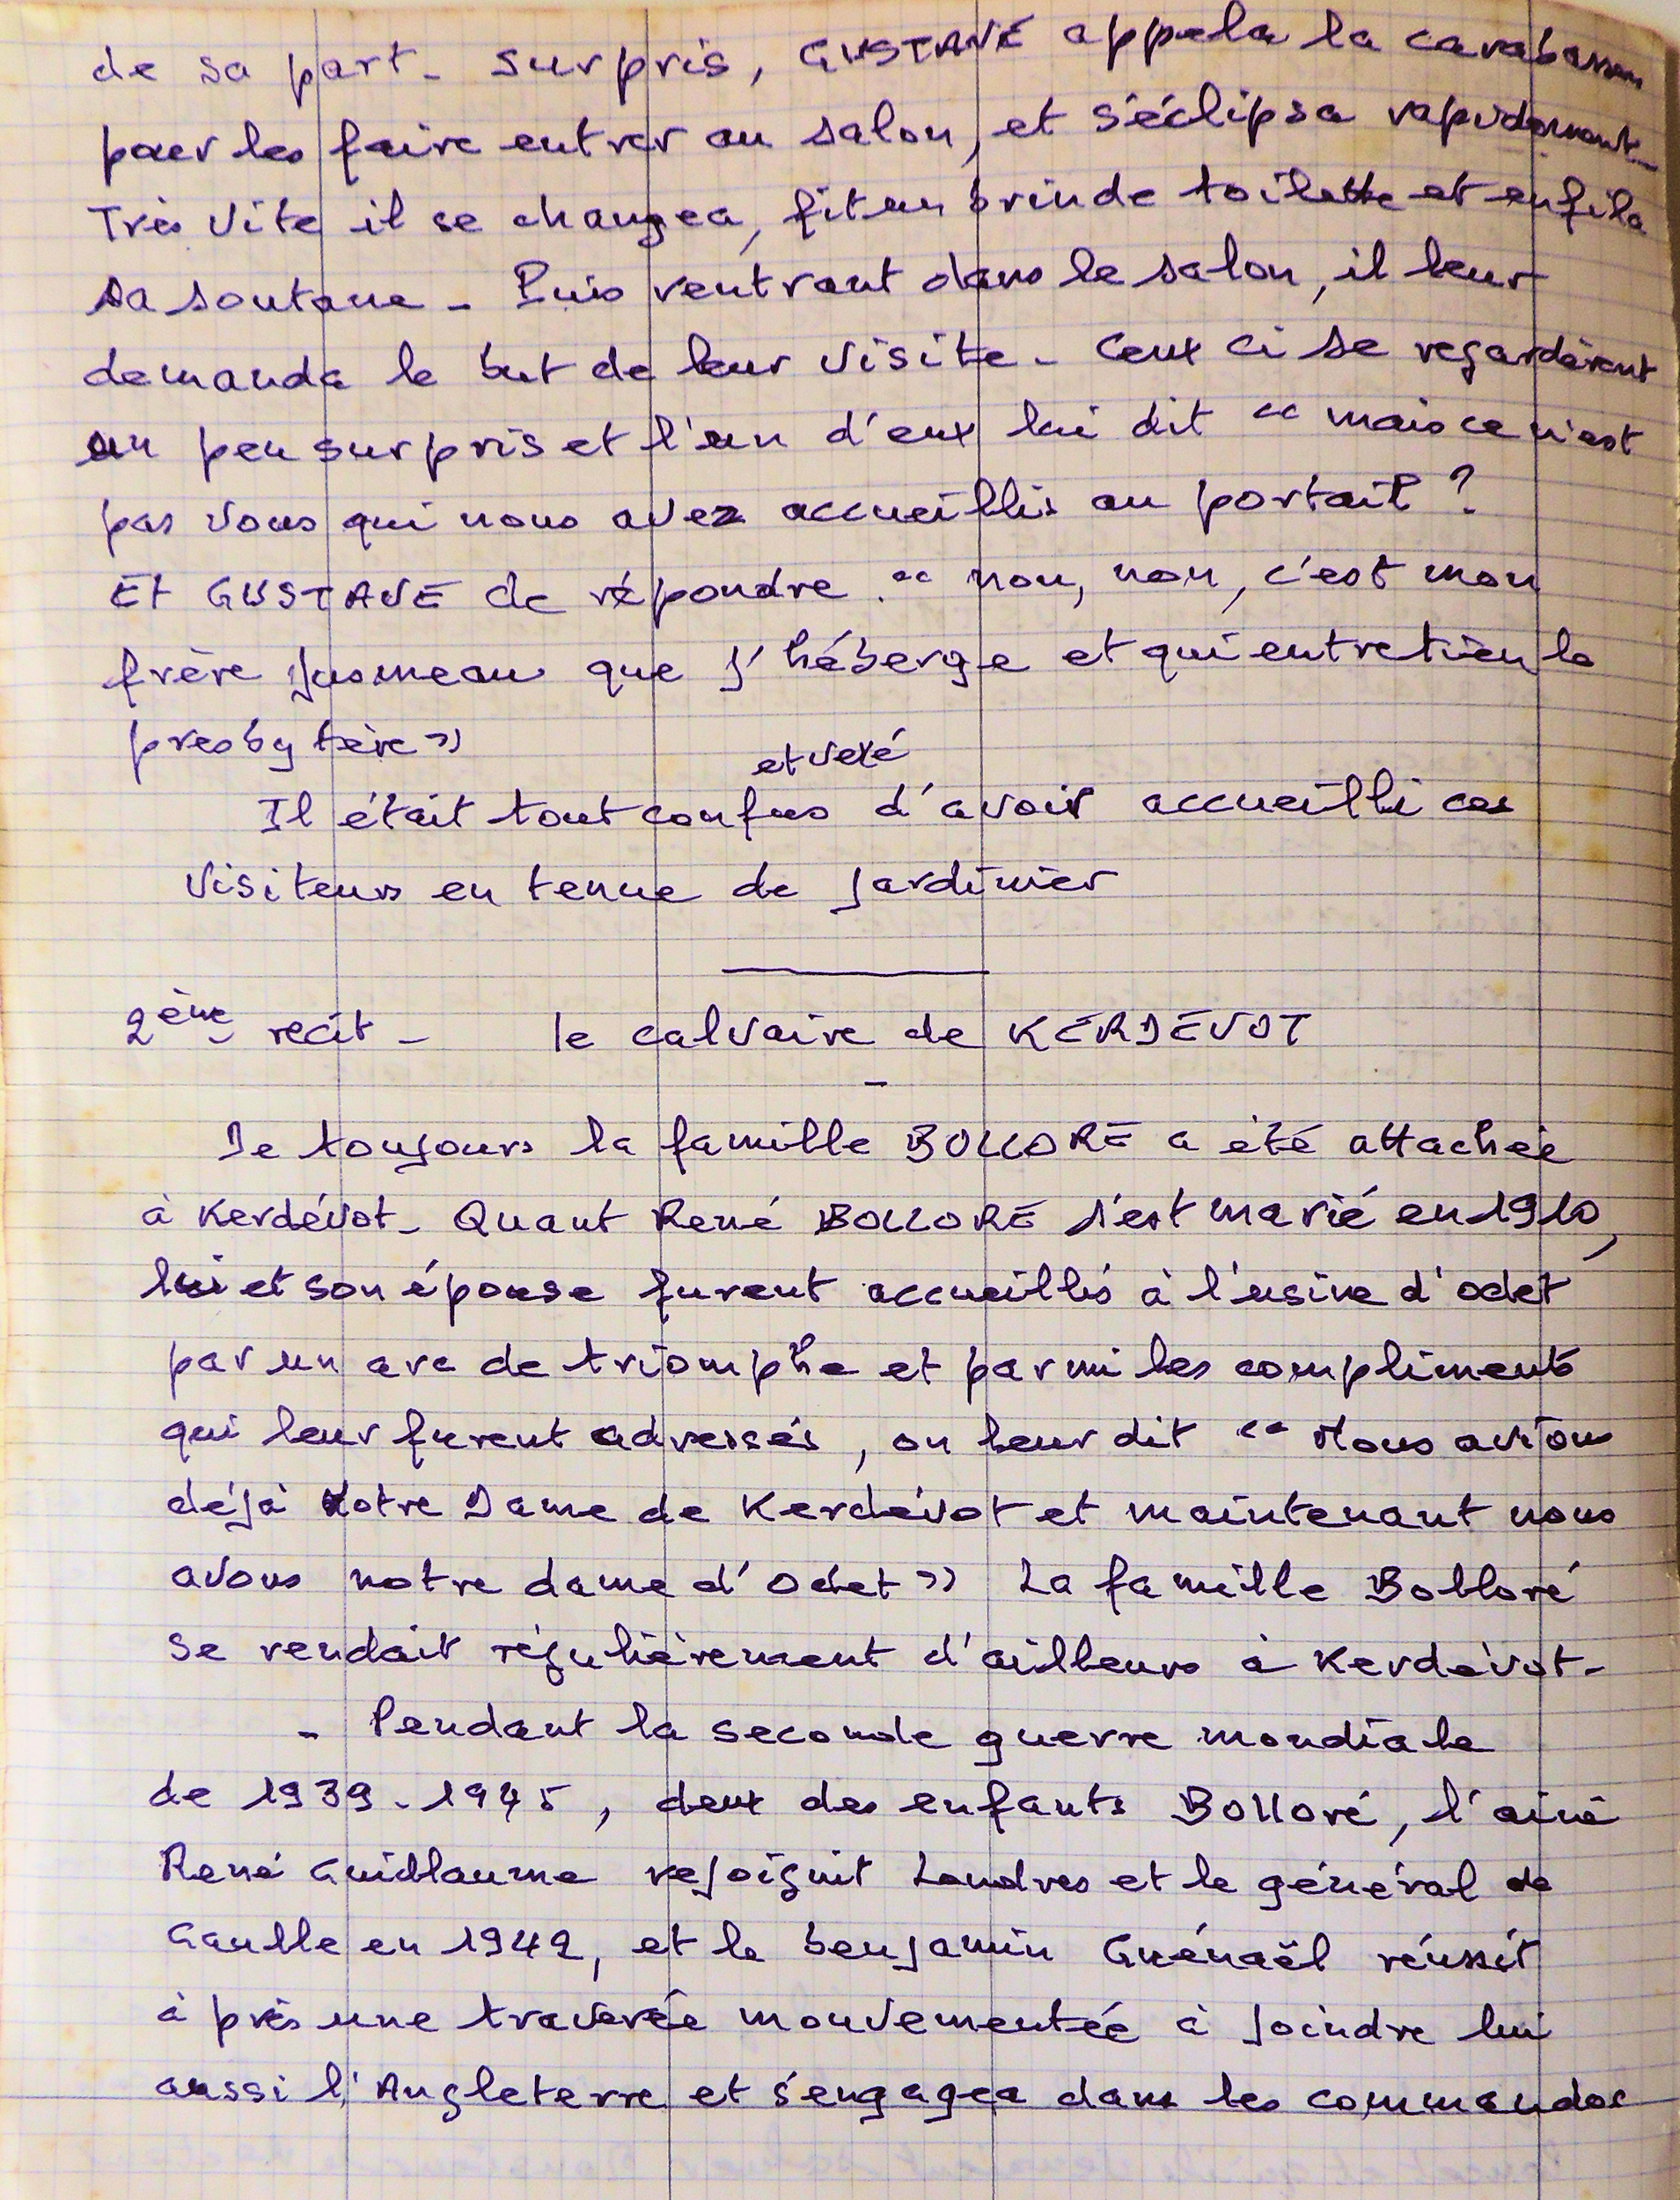 de sa part - Surpris, GUSTAVE appela la carabassen
pour les faire entrer au salon, et s'éclipsa rapidement -
Très vite il se changea, fit un brin de toilette et enfila
sa soutane - Puis rentrant dans le salon, il leur
demanda le but de leur visite - Ceux ci se regardèrent
un peu surpris et l'un d'eux lui dit "mais ce n'est
pas vous qui nous avez accueillis au portail ?
Et GUSTAVE de répondre : "non, non, c'est mon
frère jusmeau que j'héberge et qui entretien le
presbytère"
et vexé
Il était tout confus d'avoir accueilli ces
visiteurs en tenue de jardinier
2ème récit - le calvaire de KERDEVOT
-
De toujours la famille BOLLORE a été attachée
à Kerdévot - Quant René BOLLORE s'est marié en 1910,
lui et son épouse furent accueillis à l'usine d'odet
par un arc de triomphe et parmi les compliments
qui leur furent adressés, on leur dit "Nous avions
déjà Notre Dame de Kerdévot et maintenant nous
avons notre dame d'Odet" La famille Bolloré
se rendait régulièrement d'ailleurs à Kerdévot -
- Pendant la seconde guerre mondiale
de 1939-1945, deux des enfants Bolloré, l'ainé
René Guillaume rejoignit Londres et le général de
Gaulle en 1942, et le benjamin Guénaël réussit
à près une traversée mouvementée à joindre lui
aussi l'Angleterre et s'engagea dans les commandos